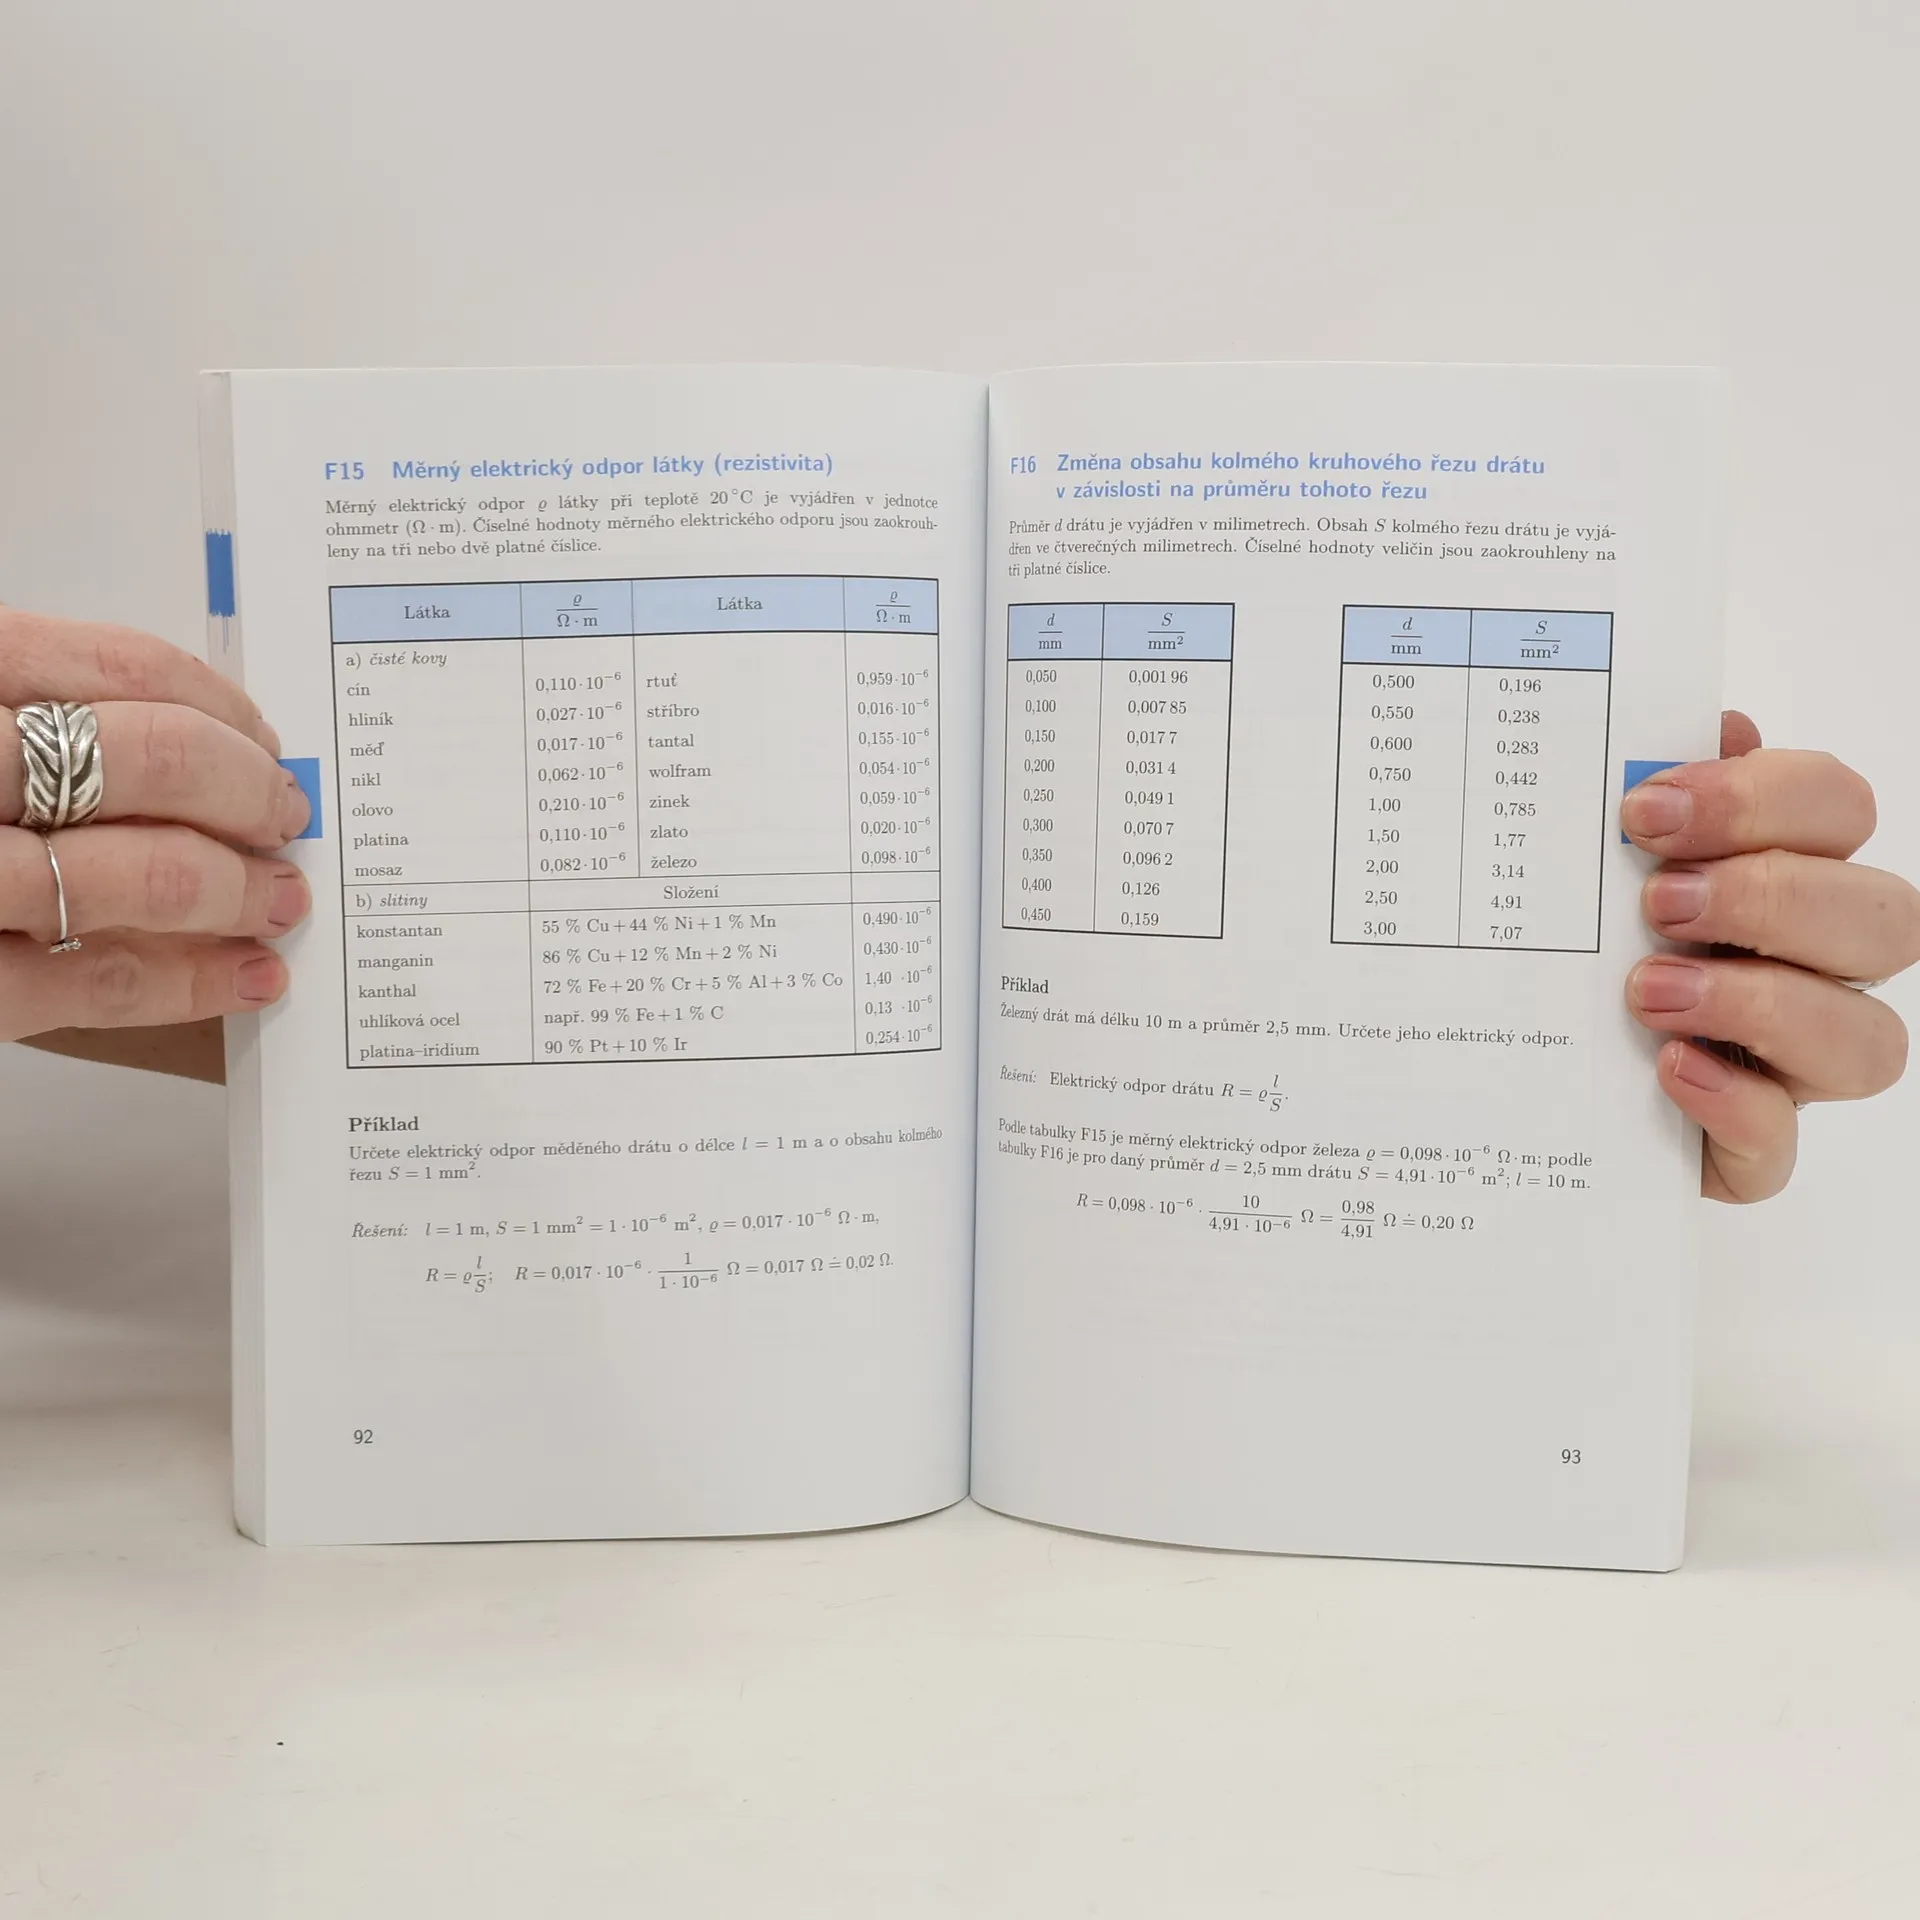 F15 Měrný elektrický odpor látky (rezistivita)
Měrný elektrický odpor ϱ látky při teplotě 20 °C je vyjádřen v jednotce
ohmmetr (Ω · m). Číselné hodnoty měrného elektrického odporu jsou zaokrouh-
leny na tři nebo dvě platné číslice.
Látka ϱ/(Ω · m) Látka ϱ/(Ω · m)
a) čisté kovy
cín 0,110 · 10⁻⁶ rtuť 0,959 · 10⁻⁶
hliník 0,027 · 10⁻⁶ stříbro 0,016 · 10⁻⁶
měď 0,017 · 10⁻⁶ tantal 0,155 · 10⁻⁶
nikl 0,062 · 10⁻⁶ wolfram 0,054 · 10⁻⁶
olovo 0,210 · 10⁻⁶ zinek 0,059 · 10⁻⁶
platina 0,110 · 10⁻⁶ zlato 0,020 · 10⁻⁶
mosaz 0,082 · 10⁻⁶ železo 0,098 · 10⁻⁶
b) slitiny Složení
konstantan 55 % Cu + 44 % Ni + 1 % Mn 0,490 · 10⁻⁶
manganin 86 % Cu + 12 % Mn + 2 % Ni 0,430 · 10⁻⁶
kanthal 72 % Fe + 20 % Cr + 5 % Al + 3 % Co 1,40 · 10⁻⁶
uhlíková ocel např. 99 % Fe + 1 % C 0,13 · 10⁻⁶
platina–iridium 90 % Pt + 10 % Ir 0,254 · 10⁻⁶
Příklad
Určete elektrický odpor měděného drátu o délce l = 1 m a o obsahu kolmého
řezu S = 1 mm².
Řešení: l = 1 m, S = 1 mm² = 1 · 10⁻⁶ m², ϱ = 0,017 · 10⁻⁶ Ω · m,
R = ϱ l/S; R = 0,017 · 10⁻⁶ · 1/(1 · 10⁻⁶) Ω = 0,017 Ω ≐ 0,02 Ω.
92
F16 Změna obsahu kolmého kruhového řezu drátu
v závislosti na průměru tohoto řezu
Průměr d drátu je vyjádřen v milimetrech. Obsah S kolmého řezu drátu je vyjá-
dřen ve čtverečných milimetrech. Číselné hodnoty veličin jsou zaokrouhleny na
tři platné číslice.
d/mm S/mm² d/mm S/mm²
0,050 0,001 96 0,500 0,196
0,100 0,007 85 0,550 0,238
0,150 0,017 7 0,600 0,283
0,200 0,031 4 0,750 0,442
0,250 0,049 1 1,00 0,785
0,300 0,070 7 1,50 1,77
0,350 0,096 2 2,00 3,14
0,400 0,126 2,50 4,91
0,450 0,159 3,00 7,07
Příklad
Železný drát má délku 10 m a průměr 2,5 mm. Určete jeho elektrický odpor.
Řešení: Elektrický odpor drátu R = ϱ l/S.
Podle tabulky F15 je měrný elektrický odpor železa ϱ = 0,098 · 10⁻⁶ Ω · m; podle
tabulky F16 je pro daný průměr d = 2,5 mm drátu S = 4,91 · 10⁻⁶ m²; l = 10 m.
R = 0,098 · 10⁻⁶ · 10/(4,91 · 10⁻⁶) Ω = 0,98/4,91 Ω ≐ 0,20 Ω
93